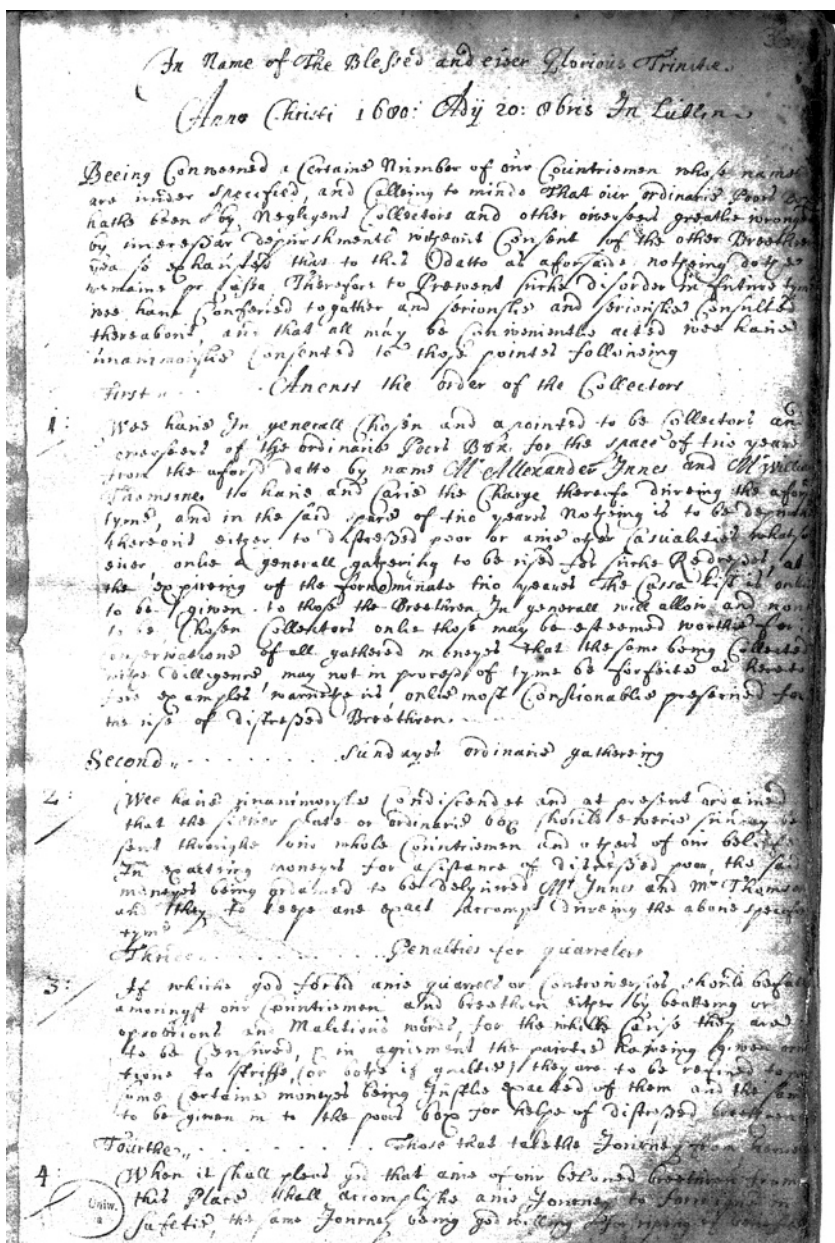 36
In Name of The Blessed and ewer Glorious Trinitie.
Anno Christi 1680: Adij 20: 8bris In Lublin
Beeing Conweened a Certaine Number of our Countriemen whose names
are under specified, and Calleing to minde That our ordinarie Poors
hathe been by Neglegens Collectors and other owerseers greatlie wronged
by unnecessar depurshments without Consent of the other Breethren
yea so exhausted that to this Datto as aforsaide nothing dothe
remaine pr Cassa Therefore to Prewent suche disorder In future tyme
wee haue Conferred togather and seriouslie and seriouslie Consulted
thereabout, and that all may be Conwenientlie acted wee haue
unanimouslie Consented to those pointes following
First Anenst the order of the Collectors
1: Wee haue In generall Chosen and apointed to be Collectors and
owerseers of the ordinarie Poors Box for the space of tuo years
from the aforsd datto by name Mr Allexander Innes and Mr William
Thomsone to haue and Carie the Charge thereofe dureing the afor
tyme, and in the said space of tuo yeares Nothing is to be
thereoni either to distressed poor or anie other Casualities whatso
ewer onlie a generall gathering to be rised for suche Redresses, at
the expireing of the fornominate tuo yeares the Cassa kist is onlie
to be giwen to those the Breethren In generall will allow and none
to be Chosen Collectors onlie those may be esteemed worthie for
Conserwatione of all gathered moneyes that the same being Collected
withe dilligence may not in process of tyme be forfeite as hereto
fore examples onlie most Constionablie preserued for
the use of distressed Breethren.
Second Sundayes ordinarie gathereing
2: Wee haue unanimouslie Condiscendet and at present ordained
that the silwer plate or ordinarie box should ewerie sunday be
sent throughe our whole Countriemen and others of our beliefe
In exacting moneyes for asistance of distressed poor, the said
moneyes being ordained to be delyuered Mr Innes and Mr Thomson
and they to keepe ane exact Accompt dureing the aboue specified
tyme
Thride Penalties for quarrelers
3: If whiche god forbid anie quarrels or Controwersies should befall
amoungst our Countriemen and breethren either by beateing or
oprobrious and Malitious words, for the whille Cause they are
to be Censured, in agriement the pairtie haweing giwen
tione to striffe, (or bothe if guiltie) they are to be
some Certaine moneyes being Justlie exacted of them and the same
to be giwen in to the poors box for helpe of distressed breethren
Fourthe Those that take the Journey from
4: When it shall pleas god that anie of our beloued breethren from
this Place shall accomplishe anie Journey to forraigne in
safetie, the same Journey being god willing
Uniw.
a